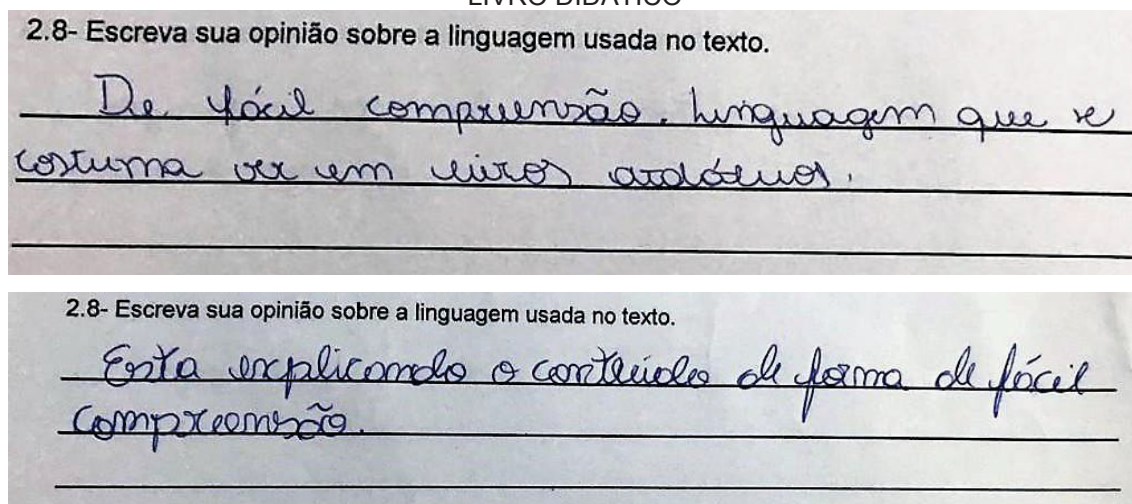 LIVRO DIDÁTICO
2.8- Escreva sua opinião sobre a linguagem usada no texto.
De fácil compreensão. Linguagem que se
costuma ver em livros
2.8- Escreva sua opinião sobre a linguagem usada no texto.
Esta explicando o conteúdo de forma de fácil
compreensão.